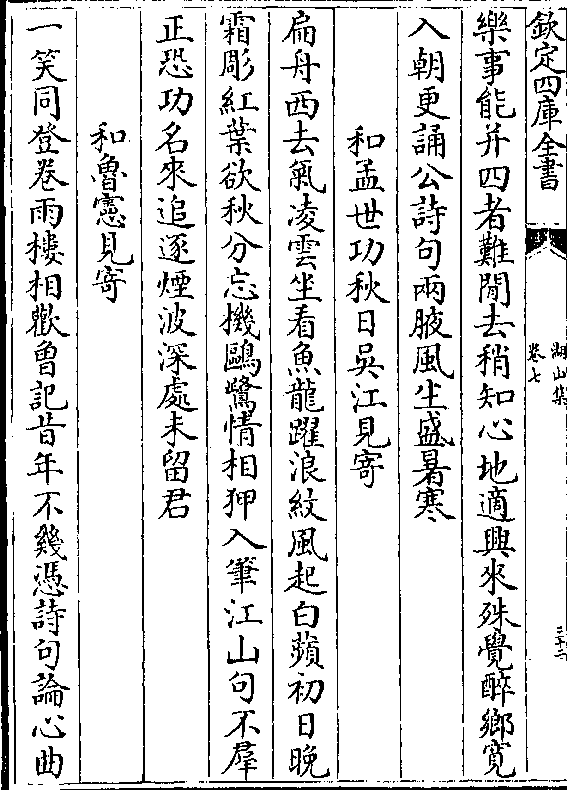 欽定四庫全書
湖山集
卷七
三十二
樂事能并四者難閒去稍知心地適興來殊覺醉鄉寛
入朝更誦公詩句兩腋風生盛暑寒
和孟世功秋日吳江見寄
扁舟西去氣凌雲坐看魚龍躍浪紋風起白蘋初日晚
霜彫紅葉欲秋分忘機鷗鷺情相狎入筆江山句不羣
正恐功名來追逐煙波深處未留君
和魯憲見寄
一笑同登卷雨樓相歡曾記昔年不幾憑詩句論心曲